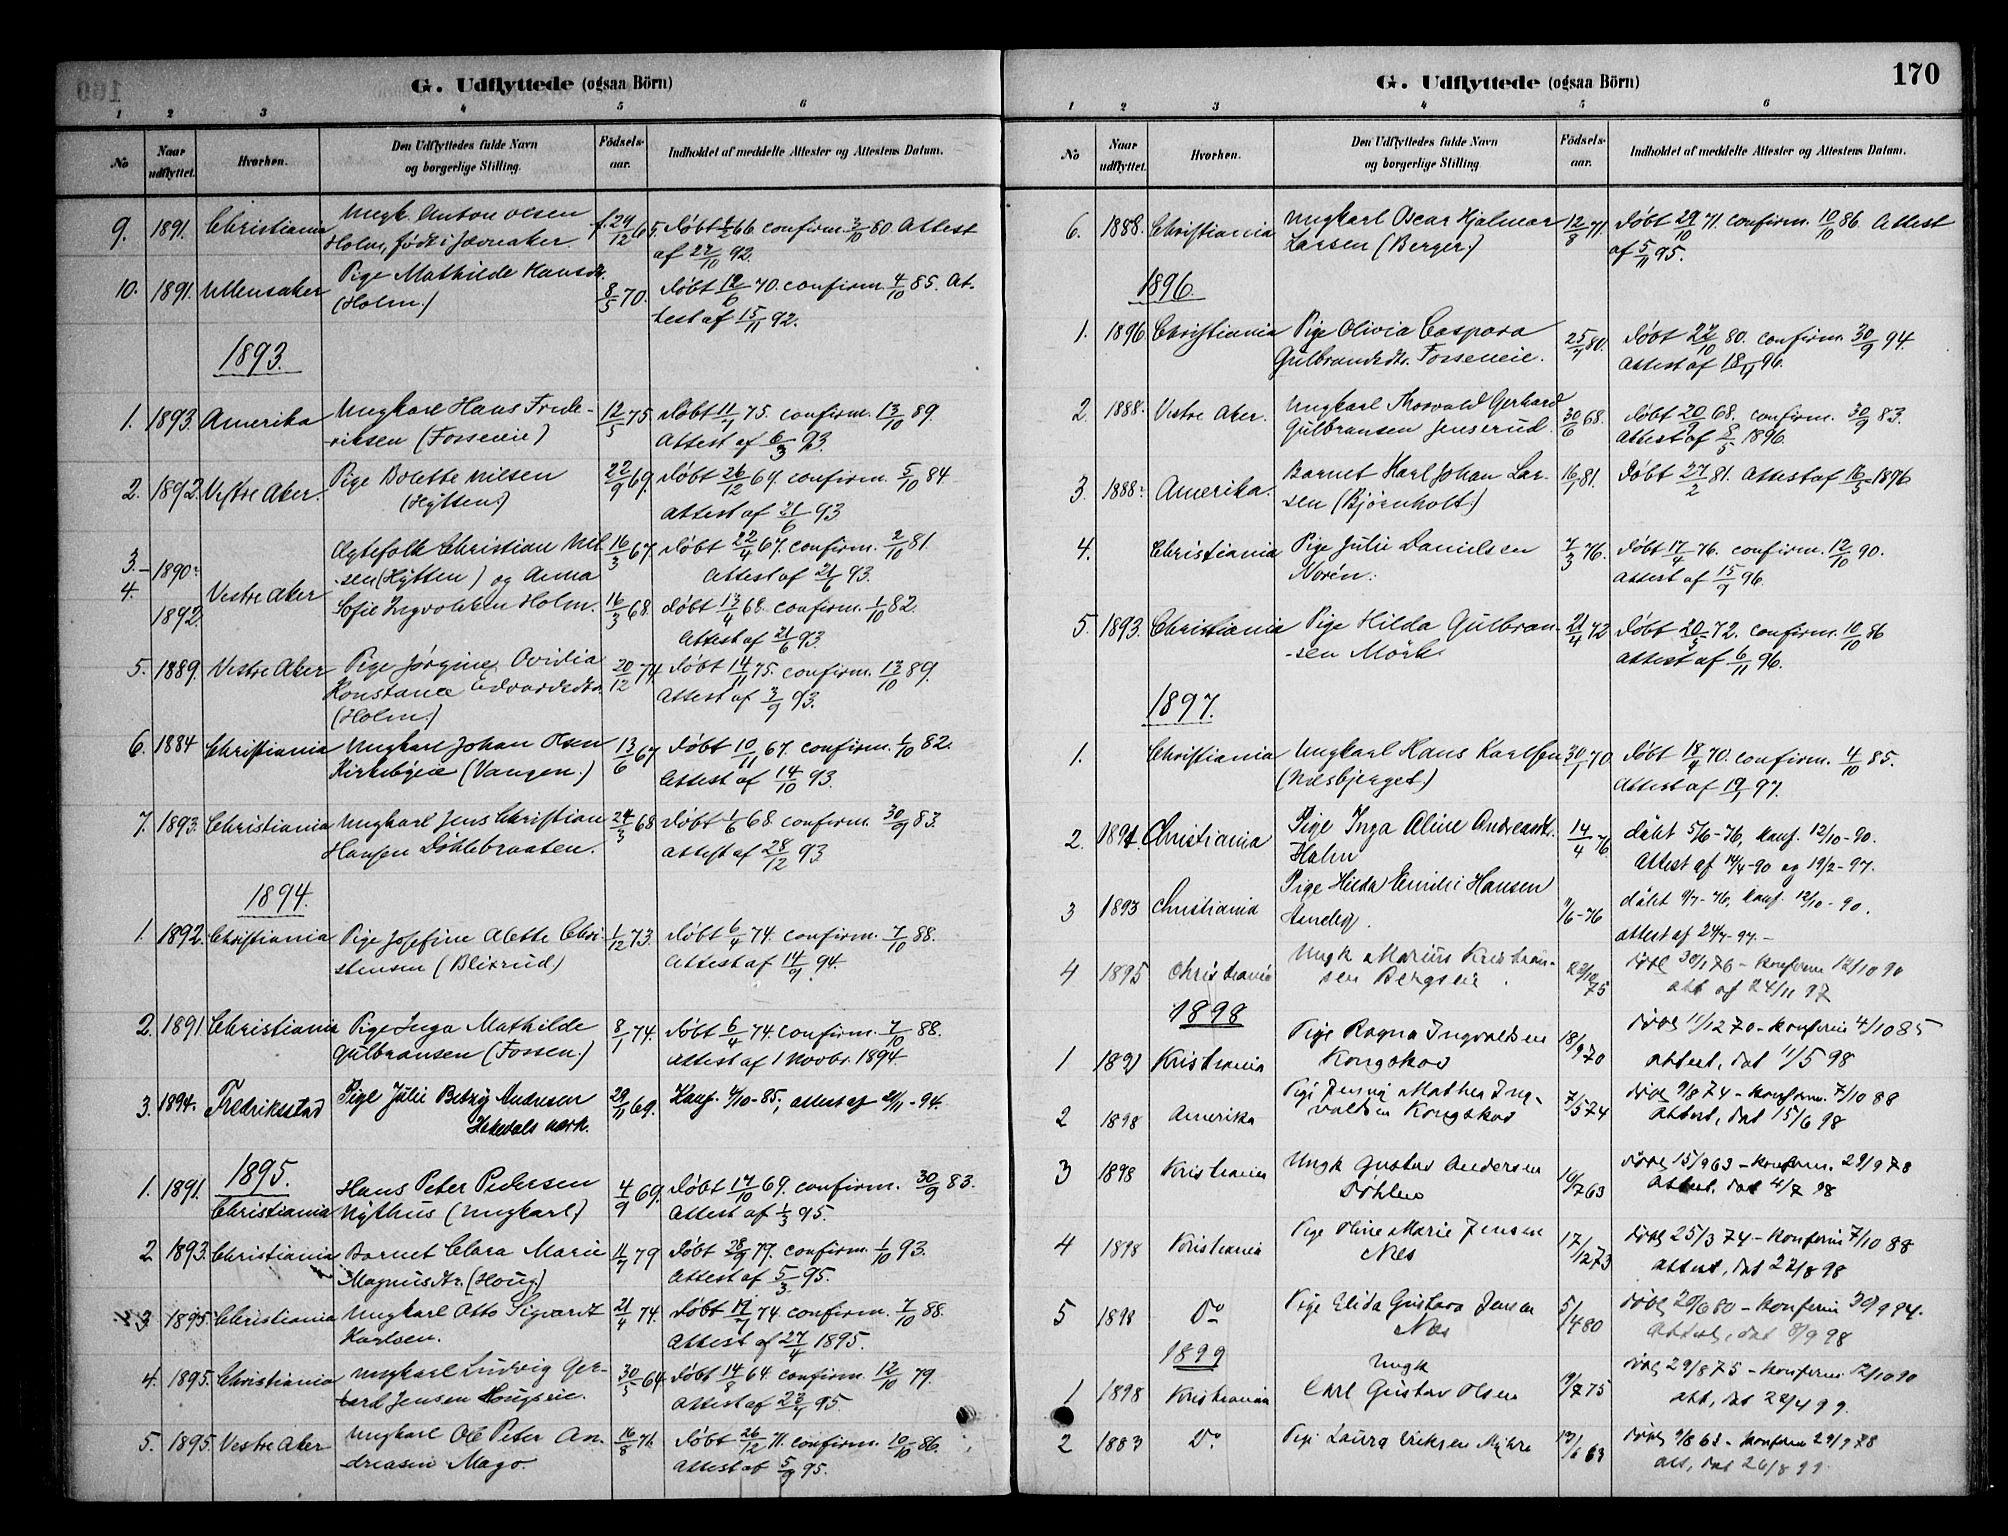 G. Udflyttede (ogsaa Börn)
1 2 3 4 5 6
No Naar udflyttet. Hvorhen. Den Udflyttedes fulde Navn og borgerlige Stilling. Födsels-aar. Indholdet af meddelte Attester og Attestens Datum.
9. 1891. Christiania Ungk. Anton Olsen f. 29/12 65. Döbt 66 confirm. 3/10 80 Attest
Holm, født i Jevnaker af 22/10 92.
10. 1891. Ullensaker Pige Mathilde Hansdr. 8/5 70. Döbt 12/6 70. confirm. 4/10 85. At-
(Holm.) test af 15/11 92.
1893.
1. 1893. Amerika Ungkarl Hans Frede- 12/5 75. Döbt 11/7 75. confirm. 13/10 89.
riksen (Fosseneie) Attest af 6/3 93.
2. 1892. Vestre Aker. Pige Bolette Nilsen 22/9 69. Döbt 26/12 69. confirm. 5/10 84
(Hÿtten.) Attest af 21/6 93
3.- 1890- Ægtefolk Christian Nil- 16/3 67. Döbt 22/4 67. confirm. 2/10 81.
4. Vestre Aker sen (Hÿtten) og Anna Attest af 21/6 93.
1892. Sofie Ingvoldsen Holm. 16/3 68. döbt 13/4 68. confirm. 1/10 82.
Attest af 21/6 93.
5. 1889. Vestre Aker Pige Jørgine Ovidia 20/12 74. Döbt 14/11 75. confirm. 13/10 89.
Konstance Edvardsdtr. Attest af 3/9 93.
(Holm.)
6. 1884 Christiania Ungkarl Johan Olsen 13/6 67 Döbt 10/11 67. confirm. 1/10 82.
Kirkebyeie (Vangen.) Attest af 14/10 93.
7. 1893. Christiania Ungkarl Jens Christian 24/3 68 Döbt 1/6 68. confirm. 30/9 83.
Hansen Döhlebraaten. Attest af 28/12 93
1894.
1. 1892. Christiania Pige Josefine Alette Chri- 1/12 73. Döbt 6/4 74. confirm. 7/10 88.
stensen (Blixrud) Attest af 14/9 94.
2. 1891. Christiania Pige Inga Mathilde 8/1 74. Döbt 6/4 74. confirm. 7/10 88.
Gulbransen (Fossen.) Attest af 1 Novbr. 1894.
3. 1894. Fredriksstad Pige Julie Betzy Andresen 29/11 69. Konf. 4/10-85, attest af 21/11-94.
Hakedals værk.
1895.
1. 1891. Hans Peter Pedersen 4/9 69. Döbt 17/10 69. confirm. 30/9 83.
Christiania Nÿthus (Ungkarl) Attest af 1/3 95.
2 1893. Christiania Barnet Clara Marie 11/7 79 Döbt 28/9 79. confirm. 1/10 93.
Magnusdtr. (Houg.) Attest af 5/3 95.
3. 1895. Christiania Ungkarl Otto Sigvardt 21/4 74. Döbt 19/7 74 confirm. 7/10 88.
Karlsen. Attest af 27/4 1895.
4. 1895. Christiania Ungkarl Ludvig Ger- 30/5 64. Döbt 14/8 64. confirm. 12/10 79.
hard Jensen Hougseie. Attest af 95.
5. 1895. Vestre Aker Ungkarl Ole Peter An- 16/8 71. Döbt 26/12 71. confirm. 10/10 86.
dreasen Mago. Attest af 5/9 95.
G. Udflyttede (ogsaa Börn) 170
1 2 3 4 5 6
No Naar udflyttet. Hvorhen. Den Udflyttedes fulde Navn og borgerlige Stilling Födsels-aar. Indholdet af meddelte Attester og Attestens Datum.
6. 1888. Christiania Ungkarl Oscar Hjalmar 12/8 71. Döbt 29/10 71. confirm. 10/10 86. Attest
Larsen (Berger.) af 5/11 95.
1896.
1. 1896. Christiania Pige Olivia Caspara 25/7 80. Döbt 22/10 80. confirm. 30/9 94.
Gulbrandsdtr. Fosseneie. Attest af 96.
2. 1888. Vestre Aker. Ungkarl Thorvald Gerhard 30/6 68. Döbt 20/9 68. confirm. 30/9 83.
Gulbransen Jenserud. Attest af 8/5 1896.
3. 1888- Amerika. Barnet Karl Johan Lar- 16/1 81. Döbt 27/2 81. Attest af 16/5 1896
sen (Bjørnholt.)
4. Christiania Pige Julie Danielsen 7/3 76. Döbt 17/4 76. confirm. 12/10 90.
Norén. Attest af 15/9 96.
5. 1893. Christiania Pige Hilda Gulbran- 21/4 72 Döbt 20/5 72. confirm. 10/10 86
sen Mörk. Attest af 6/11 96.
1897.
1. Christiania Ungkarl Hans Karlsen 30/1 70. Döbt 18/4 70. confirm. 4/10 85.
(Nilsbjerget.) Attest af 97.
2. Christiania Pige Inga Oline Andreasdt. 14/4 76. døbt 5/6-76, konf. 12/10-90.
Holm Attest af 14/4-90 og 19/2-97.
3 1893 Christiania Pige Hilda Emilie Hansen 9/6-76 døbt 9/7-76, konf. 12/10-90.
attest af 24/7-97.-
4 1895 Christiania Ungk Marius Kristian- 23/10 75 Döbt 30/1 76 - konferm 12/10 90
sen Bergseie. att af 24/11 97
1898
1 Kristiania Pige Ragna Ingvaldsen 18/9 70 Döbt 11/12 70 - konferm 4/10 85
Kongskov attest, dat 11/5 98
2 1898 Amerika Pige Jenny Mathea Ing- 7/5 74 Döbt 9/8 74 - konferm. 7/10 88
valdsen Kongskov attest, dat 15/6 98
3 1898 Kristiania Ungk Gustav Andersen 19/7 63 Döbt 15/9 63 - konferm. 29/9 78
Döhlen attest, dat 4/7 98
4 1898 Kristiania Pige Oline Marie Jensen 17/12 73 Döbt 25/3 74 - konferm 7/10 88
Nes attest, dat 22/8 98
5 1898 Do Pige Elida Gustava Jensen 5/4 80 Döbt 20/6 80 - konferm 30/9 94.
Nes attest, dat 8/9 98
1899
Ungk 19/7 75 Döbt 29/8 75 - konferm 12/10 90
1 1898 Kristiania Carl Gustav Olsen att, dat 22/4 99.
2 1883 Do Pige Laura Eriksen Myhre 63 Döbt 9/8 63 - konferm 29/9 78
att, dat 26/8 99